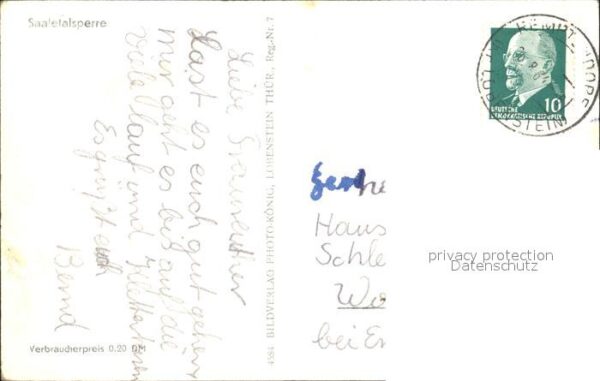 Saaletalsperre
Liebe
Last es euch gut gehen
mir geht es bis auf die
viele lauf und
Es grüßt euch
Bernd
Verbraucherpreis 0.20 DM
4584 BILDVERLAG PHOTO-KÖNIG, LOBENSTEIN THÜR., Reg.-Nr. 7
10
DEUTSCHE
DEMOKRATISCHE REPUBLIK
Haus
Schle
bei Er
privacy protection
Datenschutz